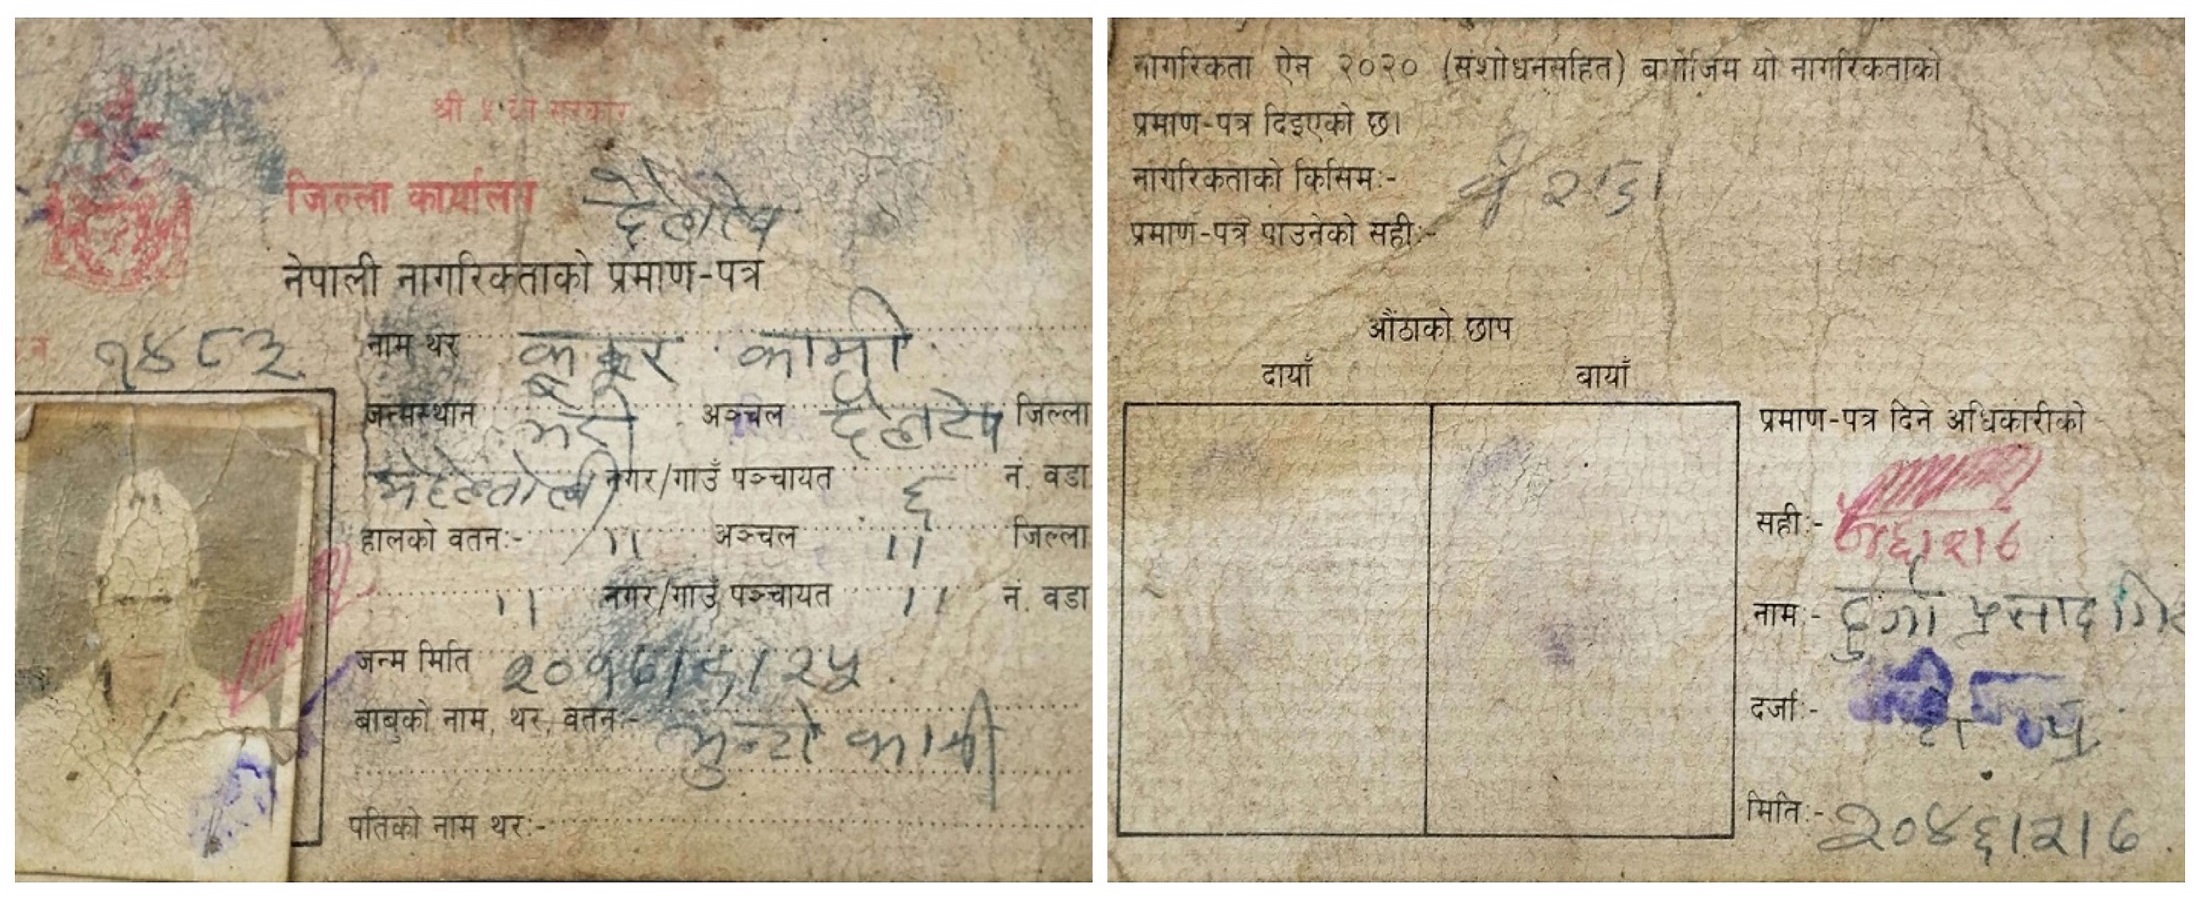 श्री ५ को सरकार
जिल्ला कार्यालय दैलेख
नेपाली नागरिकताको प्रमाण-पत्र
नं १४८३
नाम थर कामी
जन्मस्थान भेरी अञ्चल दैलेख जिल्ला
नगर/गाउँ पञ्चायत ६ नं. वडा
हालको वतन:- ।। अञ्चल ।। जिल्ला
।। नगर/गाउँ पञ्चायत ।। नं. वडा
जन्म मिति
बाबुको नाम, थर, वतन:- कामी
पतिको नाम थर:-
नागरिकता ऐन २०२० (संशोधनसहित) बमोजिम यो नागरिकताको
प्रमाण-पत्र दिइएको छ।
नागरिकताको किसिम:-
प्रमाण-पत्र पाउनेको सही:-
औंठाको छाप
दायाँ बायाँ
प्रमाण-पत्र दिने अधिकारीको
सही:- ४६।२।७
नाम:- दुर्गा प्रसाद
दर्जा:-
मिति:- २०४६।२।७